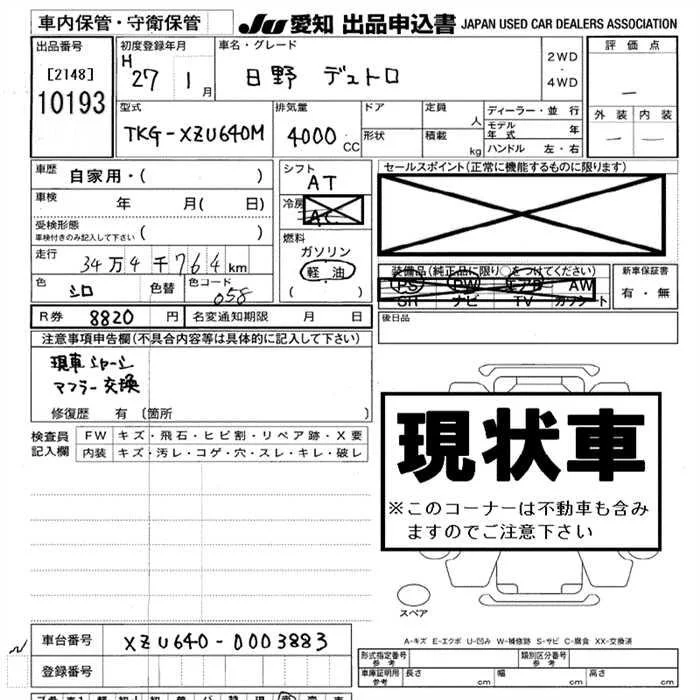 車内保管・守衛保管
JU 愛知 出品申込書 JAPAN USED CAR DEALERS ASSOCIATION
出品番号
[2148]
10193
初度登録年月
H 27 1月
車名・グレード
日野 デュトロ
2WD
・
4WD
評価点
―
外装 内装
― ―
型式
TKG-XZU640M
排気量
4000 CC
ドア
形状
定員 人
積載 kg
ディーラー・並行
モデル年式 年
ハンドル 左・右
車歴 自家用・( )
車検 年 月( 日)
受検形態
車検付きのみ記入して下さい ( )
走行 34万4千764km
色 シロ 色替 色コード 058
シフト
AT
冷房
AC
燃料
ガソリン
軽油
( )
セールスポイント(正常に機能するものに限ります)
装備品(純正品に限り○をつけてください)
PS PW エアB AW
SR ナビ TV カワシート
新車保証書
有・無
R券 8820 円 名変通知期限 月 日
後日品
注意事項申告欄(不具合内容等は具体的に記入して下さい)
現車シャーシ
マフラー交換
修復歴 有 [箇所 ]
検査員
記入欄
FW キズ・飛石・ヒビ割・リペア跡・X要
内装 キズ・汚レ・コゲ・穴・スレ・キレ・破レ
現状車
※このコーナーは不動車も含み
ますのでご注意下さい
スペア
A-キズ E-エクボ U-凹み W-補修跡 S-サビ C-腐食 XX-交換済
車台番号 XZU640-0003883
登録番号
形式指定番号
参考
類別区分番号
参考
車庫証明用
参考
長さ cm 幅 cm 高さ cm